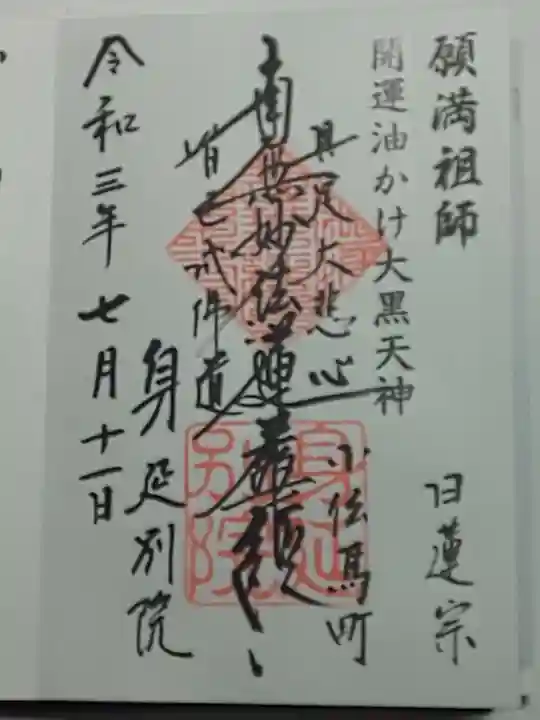 願満祖師
日蓮宗
開運油かけ大黒天神
具足大悲心
小伝馬町
南無妙法蓮華経
皆已成佛道
身延別院
令和三年七月十一日
身延
別院